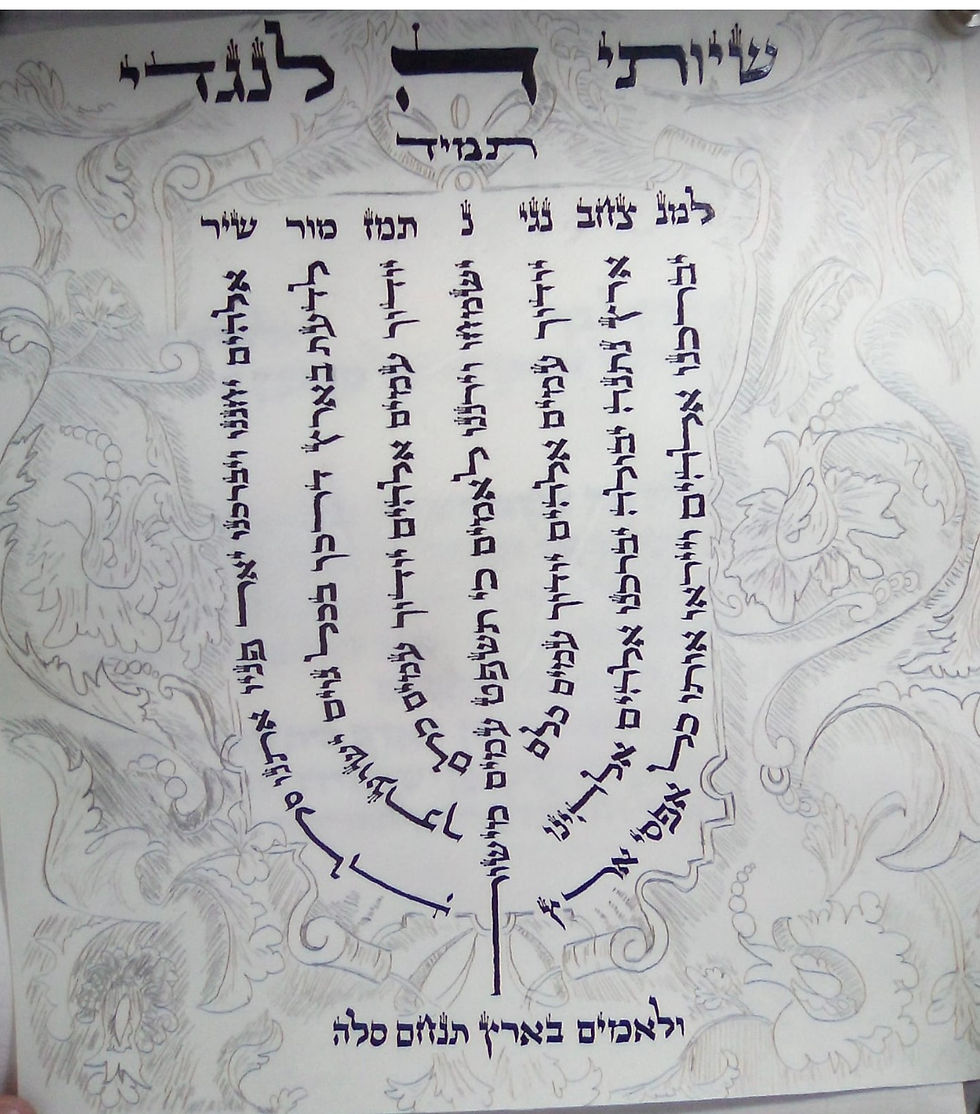 שיותי ה לנגדי
תמיד
למנ צחב נגי נ תמז מור שיר
אלהים יחננו ויברכנו יאר פניו אתנו סלה
לדעת בארץ דרכך בכל גוים ישועתך
יודוך עמים אלהים יודוך עמים כלם
ישמחו וירננו לאמים כי תשפט עמים מישור
יודוך עמים אלהים יודוך עמים כלם
ארץ נתנה יבולה יברכנו אלהים אלהינו
יברכנו אלהים וייראו אותו כל אפסי ארץ
ולאמים בארץ תנחם סלה